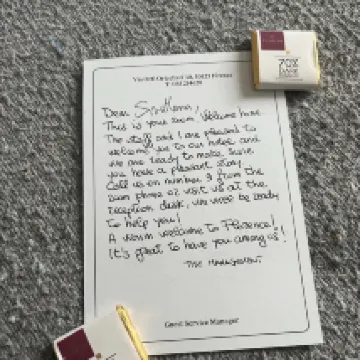 Dear
This is your room! Welcome here
The staff and I are pleased to
welcome you to our hotel and
we are ready to make sure
you have a pleasant stay.
Call us on number 9 from the
room phone or visit us at the
reception desk, we will be ready
to help you!
A warm welcome to Florence!
It's great to have you among us!
THE MANAGEMENT
Guest Service Manager
70%
DARK